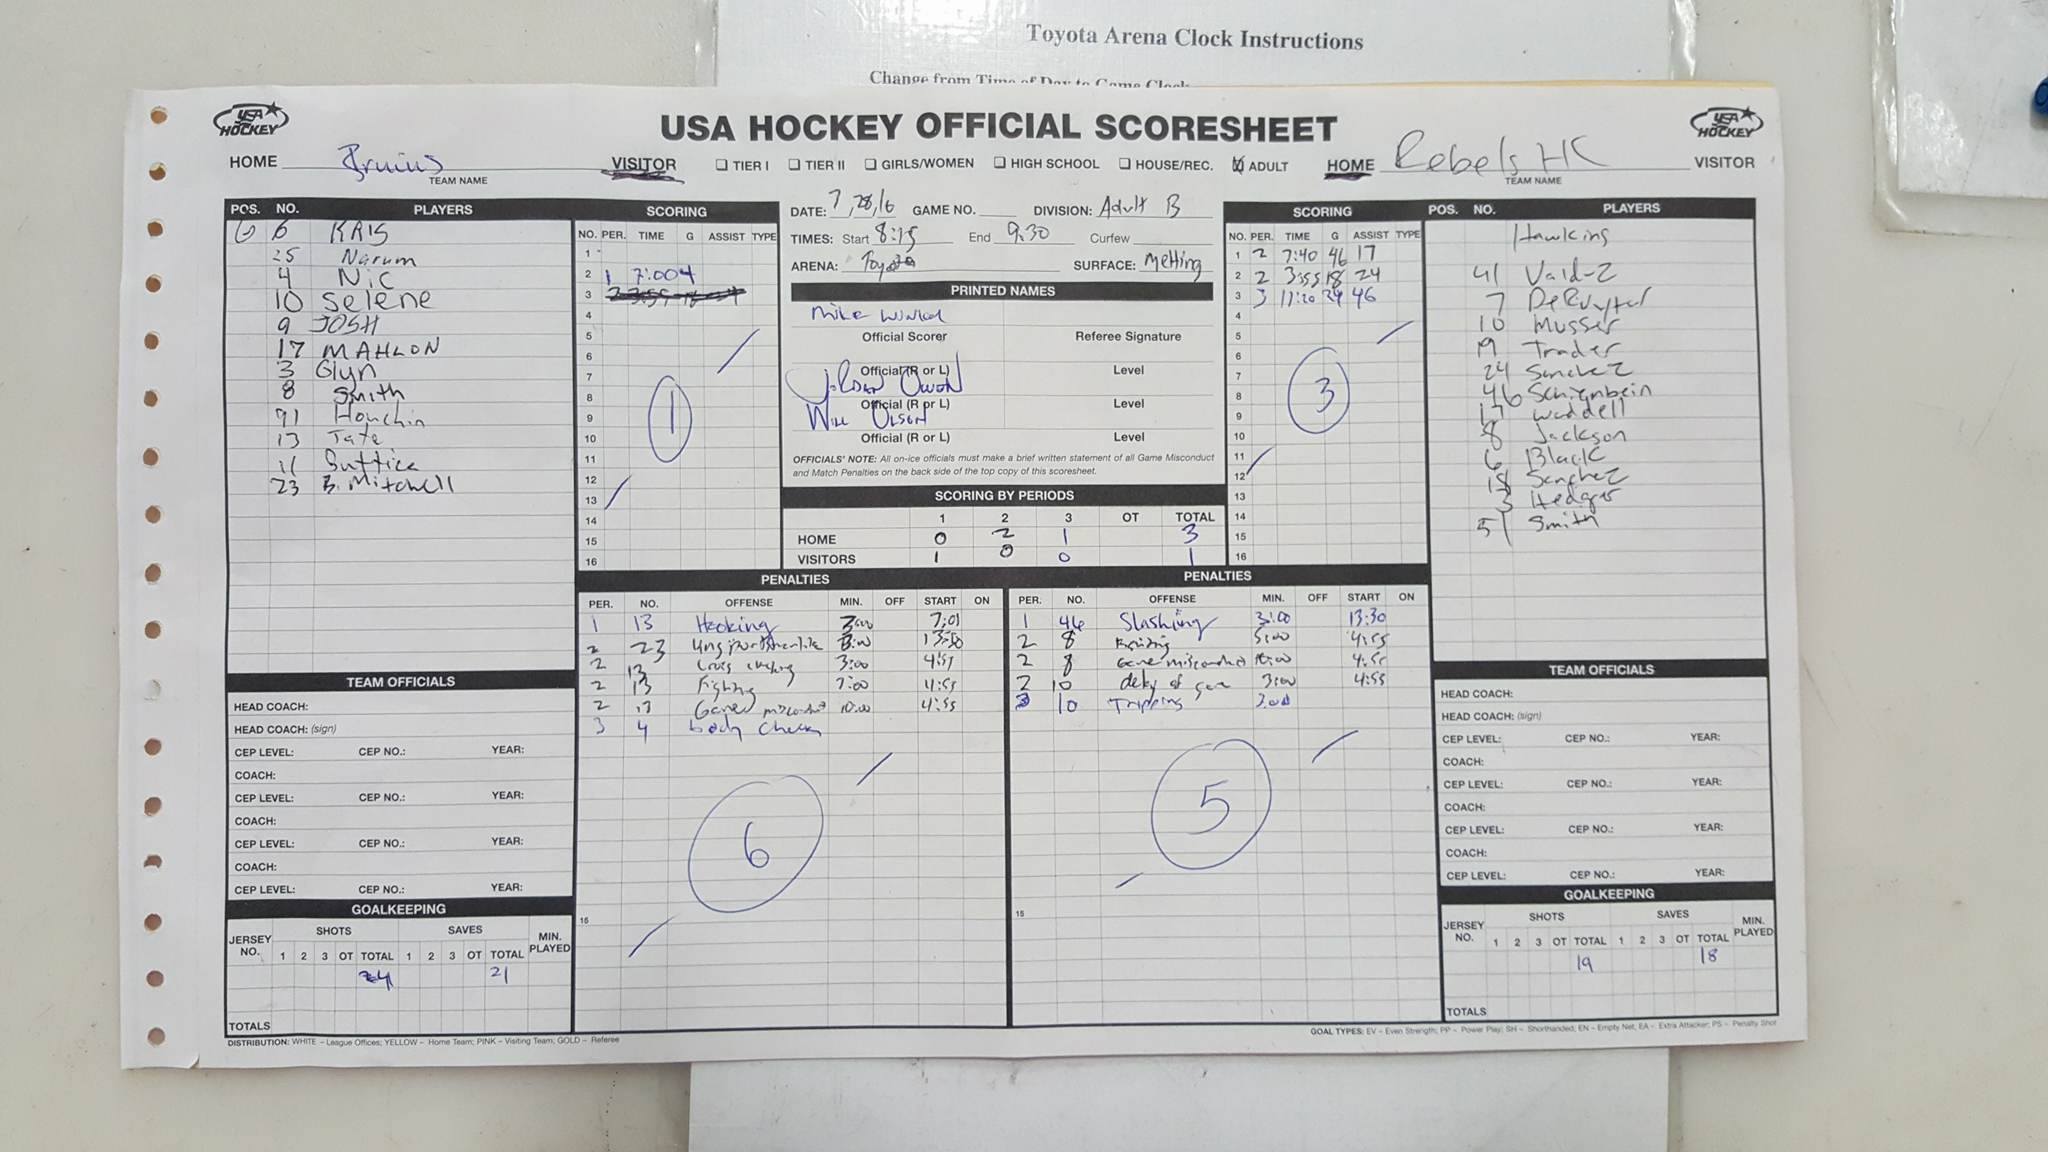 Toyota Arena Clock Instructions
Change from Time of Day to Game Clock
USA HOCKEY
USA HOCKEY OFFICIAL SCORESHEET
USA HOCKEY
HOME Bruins VISITOR
TEAM NAME
TIER I TIER II GIRLS/WOMEN HIGH SCHOOL HOUSE/REC. ADULT
HOME Rebels HC VISITOR
TEAM NAME
POS. NO. PLAYERS
G 6 KRIS
25 Narum
4 Nic
10 Selene
9 JOSH
17 MAHLON
3 Glyn
8 Smith
91 Houchin
13 Tate
11 Suttice
23 B. Mitchell
SCORING
NO. PER. TIME G ASSIST TYPE
1
2 1 7:00 4
3
4
5
6
7
8
9
10
11
12
13
14
15
16
1
DATE: 7,28,16 GAME NO. DIVISION: Adult B
TIMES: Start 8:15 End 9:30 Curfew
ARENA: Toyota SURFACE: Melting
PRINTED NAMES
Mike
Official Scorer Referee Signature
Official (R or L) Level
Jordan Owon
Official (R or L) Level
Will Olson
Official (R or L) Level
OFFICIALS' NOTE: All on-ice officials must make a brief written statement of all Game Misconduct
and Match Penalties on the back side of the top copy of this scoresheet.
SCORING BY PERIODS
1 2 3 OT TOTAL
HOME 0 2 1 3
VISITORS 1 0 0 1
SCORING
NO. PER. TIME G ASSIST TYPE
1 2 7:40 46 17
2 2 3:55 18 24
3 3 11:20 24 46
4
5
6
7
8
9
10
11
12
13
14
15
16
3
POS. NO. PLAYERS
Hawkins
41 Vald-z
7 DeRuyter
10 Musser
19 Trader
24 Sanchez
46 Schienbein
17 Waddell
8 Jackson
6 Black
18 Sanchez
3 Hedger
51 Smith
PENALTIES
PER. NO. OFFENSE MIN. OFF START ON
1 13 Hooking 3:00 7:01
2 23 3:00 13:50
2 13 Cross checking 3:00 4:51
2 13 Fighting 4:55
2 13 Game misconduct 10:00 4:55
3 4 body check
6
15
PENALTIES
PER. NO. OFFENSE MIN. OFF START ON
1 46 Slashing 3:00 13:30
2 8 5:00 4:55
2 8 Game misconduct 10:00
2 10 delay of game 3:00 4:55
3 10 Tripping 3:00
5
15
TEAM OFFICIALS
HEAD COACH:
HEAD COACH: (sign)
CEP LEVEL: CEP NO.: YEAR:
COACH:
CEP LEVEL: CEP NO.: YEAR:
COACH:
CEP LEVEL: CEP NO.: YEAR:
COACH:
CEP LEVEL: CEP NO.: YEAR:
GOALKEEPING
SHOTS SAVES
JERSEY NO. 1 2 3 OT TOTAL 1 2 3 OT TOTAL MIN. PLAYED
24 21
TOTALS
TEAM OFFICIALS
HEAD COACH:
HEAD COACH: (sign)
CEP LEVEL: CEP NO.: YEAR:
COACH:
CEP LEVEL: CEP NO.: YEAR:
COACH:
CEP LEVEL: CEP NO.: YEAR:
COACH:
CEP LEVEL: CEP NO.: YEAR:
GOALKEEPING
SHOTS SAVES
JERSEY NO. 1 2 3 OT TOTAL 1 2 3 OT TOTAL MIN. PLAYED
19 18
TOTALS
DISTRIBUTION: WHITE – League Offices; YELLOW – Home Team; PINK – Visiting Team; GOLD – Referee
GOAL TYPES: EV – Even Strength; PP – Power Play; SH – Shorthanded; EN – Empty Net; EA – Extra Attacker; PS – Penalty Shot